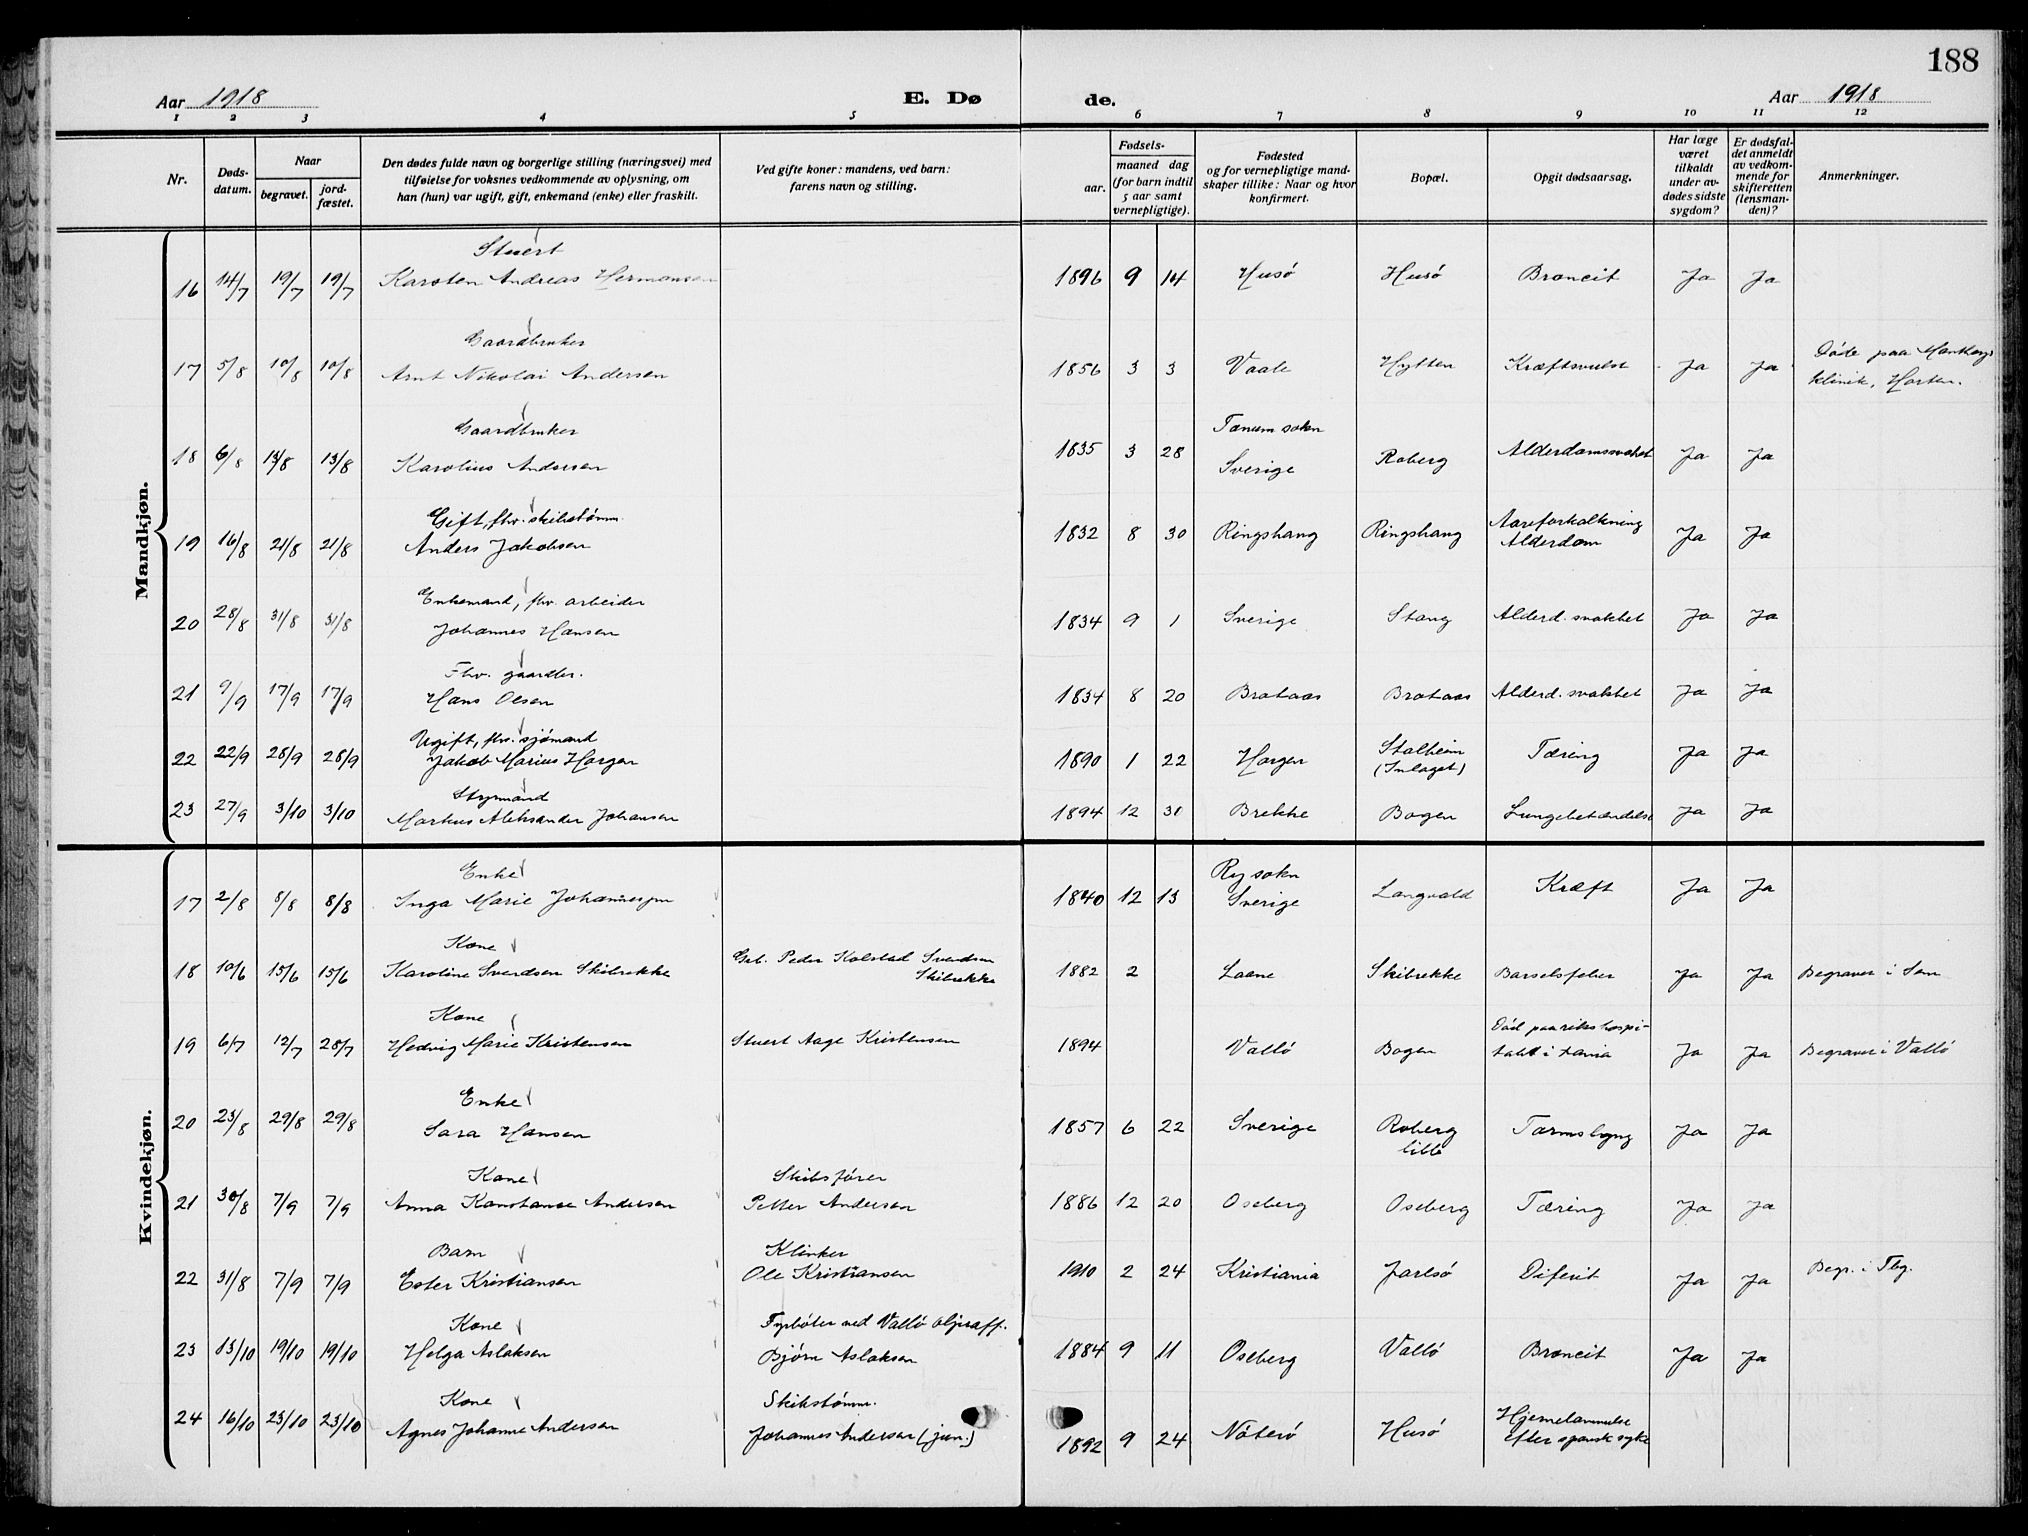 188
Aar 1918 E. Dø de. Aar 1918
1 2 3 4 5 6 7 8 9 10 11 12
Nr.
Døds-
datum.
Naar
begravet.
jord-
fæstet.
Den dødes fulde navn og borgerlige stilling (næringsvei) med
tilføielse for voksnes vedkommende av oplysning, om
han (hun) var ugift, gift, enkemand (enke) eller fraskilt.
Ved gifte koner: mandens, ved barn:
farens navn og stilling.
Fødsels-
aar.
maaned dag
(for barn indtil
5 aar samt
vernepligtige).
Fødested
og for vernepligtige mand-
skaper tillike: Naar og hvor
konfirmert.
Bopæl.
Opgit dødsaarsag.
Har læge
været
tilkaldt
under av-
dødes sidste
sygdom?
Er dødsfal-
det anmeldt
av vedkom-
mende for
skifteretten
(lensman-
den)?
Anmerkninger.
Mandkjøn.
Stuert
16 14/7 19/7 19/7 Karsten Andreas Hermansen 1896 9 14 Husø Husø Broncit Ja Ja
Gaardbruker
17 5/8 10/8 10/8 Arnt Nikolai Andersen 1856 3 3 Vaale Hytten Kræftsvulst Ja Ja Døde paa
klinik, Horten.
Gaardbruker Tanum sokn
18 6/8 13/8 13/8 Karolius Andersen 1835 3 28 Sverige Roberg Alderdomssvakhet Ja Ja
Gift, fhv. skibstømm. Aareforkalkning
19 16/8 21/8 21/8 Anders Jakobsen 1832 8 30 Ringshaug Ringshaug Alderdom Ja Ja
Enkemand, fhv. arbeider
20 28/8 31/8 31/8 Johannes Hansen 1834 9 1 Sverige Stang Alderd. svakhet Ja Ja
Fhv. gaardbr.
21 9/9 17/9 17/9 Hans Olsen 1834 8 20 Brataas Brataas Alderd. svakhet Ja Ja
Ugift, fhv. sjømand Stalheim
22 22/9 28/9 28/9 Jakob Marius Horgen 1890 1 22 Horgen (Inlaget) Tæring Ja Ja
Styrmand
23 27/9 3/10 3/10 Markus Aleksander Johansen 1894 12 31 Brekke Bogen Lungebetændelse Ja Ja
Kvindekjøn.
Enke Ry sokn
17 2/8 8/8 8/8 Inga Marie Johannesen 1840 12 13 Sverige Langvald Kræft Ja Ja
Kone Grb. Peder Kolstad Svendsen
18 10/6 15/6 15/6 Karoline Svendsen Skibrekke Skibrekke 1882 2 Laane Skibrekke Barselsfeber Ja Ja Begravet i Sem
Kone Død paa rikshospi-
19 6/7 12/7 28/7 Hedvig Marie Kristensen Stuert Aage Kristensen 1894 Vallø Bogen talet i Kania Ja Ja Begravet i Vallø
Enke
20 23/8 29/8 29/8 Sara Hansen 1857 6 22 Sverige Roberg Tarmslyng Ja Ja
lille
Kone Skibsfører
21 30/8 7/9 7/9 Anna Konstanse Andersen Petter Andersen 1886 12 20 Oseberg Oseberg Tæring Ja Ja
Barn Klinker
22 31/8 7/9 7/9 Ester Kristiansen Ole Kristiansen 1910 2 24 Kristiania Jarlsø Diferit Ja Ja Begr. i Tbg.
Kone Fyrbøter ved Vallø oljeraff.
23 13/10 19/10 19/10 Helga Aslaksen Bjørn Aslaksen 1884 9 11 Oseberg Vallø Broncit Ja Ja
Kone Skibstømm. Hjernelammelse
24 16/10 23/10 23/10 Agnes Johanne Andersen Johannes Andersen (jun.) 1892 9 24 Nøterø Husø efter spansk syke